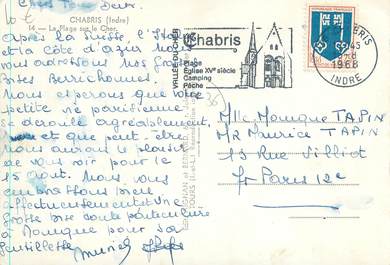 10 €
CHABRIS (Indre)
14. - La Plage sur le Cher.
Chers Tous Deux.
Après la Suisse l'Italie
et la côte d'azur nous
vous adressons nos grosses
Bises Berrichonnes.
Nous espérons que votre
petite vie parisienne
se déroule agréablement,
et que peut-être
nous aurons le plaisir
de vous voir pour le
15 Août. Nous vous
embrassons bien
affectueusement. Une
grosse bise toute particulière
à Monique pour sa
gentillesse
Muriel
VALLÉE DU CHER
Chabris
Plage
Église XVe siècle
Camping
Pêche
CHABRIS
45
1966
INDRE
Mlle Monique TAPIN
Mr Maurice TAPIN
13 Rue Villiot
Paris 12e